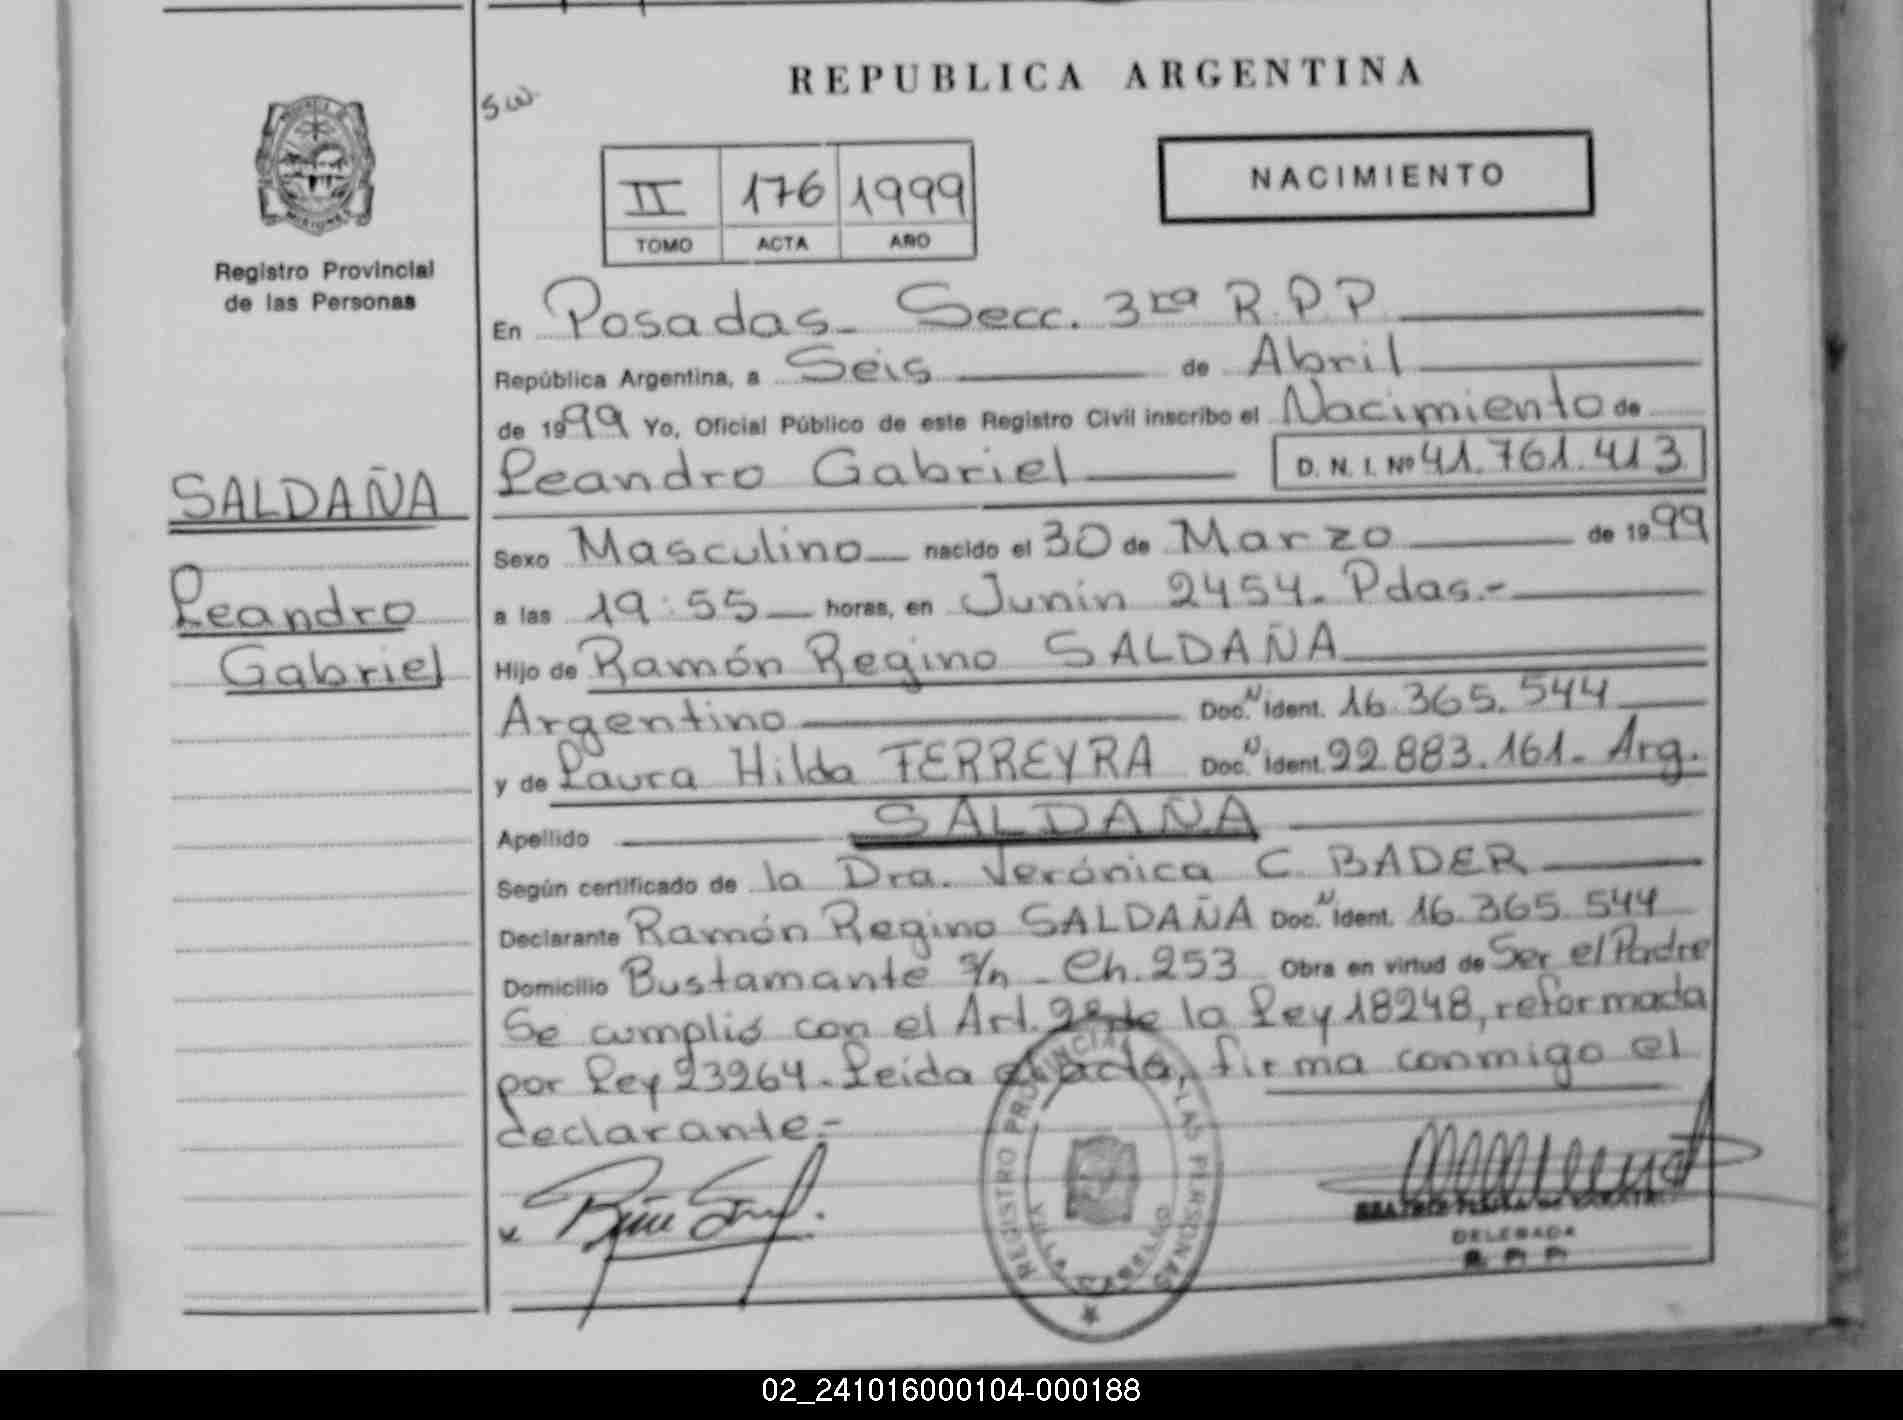 REPUBLICA ARGENTINA
sw
II 176 1999
TOMO ACTA AÑO
NACIMIENTO
Registro Provincial
de las Personas
SALDAÑA
Leandro
Gabriel
En Posadas - Secc. 3ra R.P.P
República Argentina, a Seis de Abril
de 1999 Yo, Oficial Público de este Registro Civil inscribo el Nacimiento de
Leandro Gabriel D. N. I. Nº 41.761.413
Sexo Masculino nacido el 30 de Marzo de 1999
a las 19:55 horas, en Junín 2454. Pdas.-
Hijo de Ramón Regino SALDAÑA
Argentino Doc. N Ident. 16.365.544
y de Laura Hilda FERREYRA Doc. N Ident. 22.883.161. Arg.
Apellido SALDAÑA
Según certificado de la Dra. Verónica C. BADER
Declarante Ramón Regino SALDAÑA Doc. N Ident. 16.365.544
Domicilio Bustamante s/n - Ch. 253 Obra en virtud de Ser el Padre
Se cumplió con el Art. de la Ley 18248, reformada
por Ley 23264. Leída el acta, firma conmigo el
declarante.-
REGISTRO PROVINCIAL DE LAS PERSONAS
VILLA CABELLO
DELEGADA
02_241016000104-000188